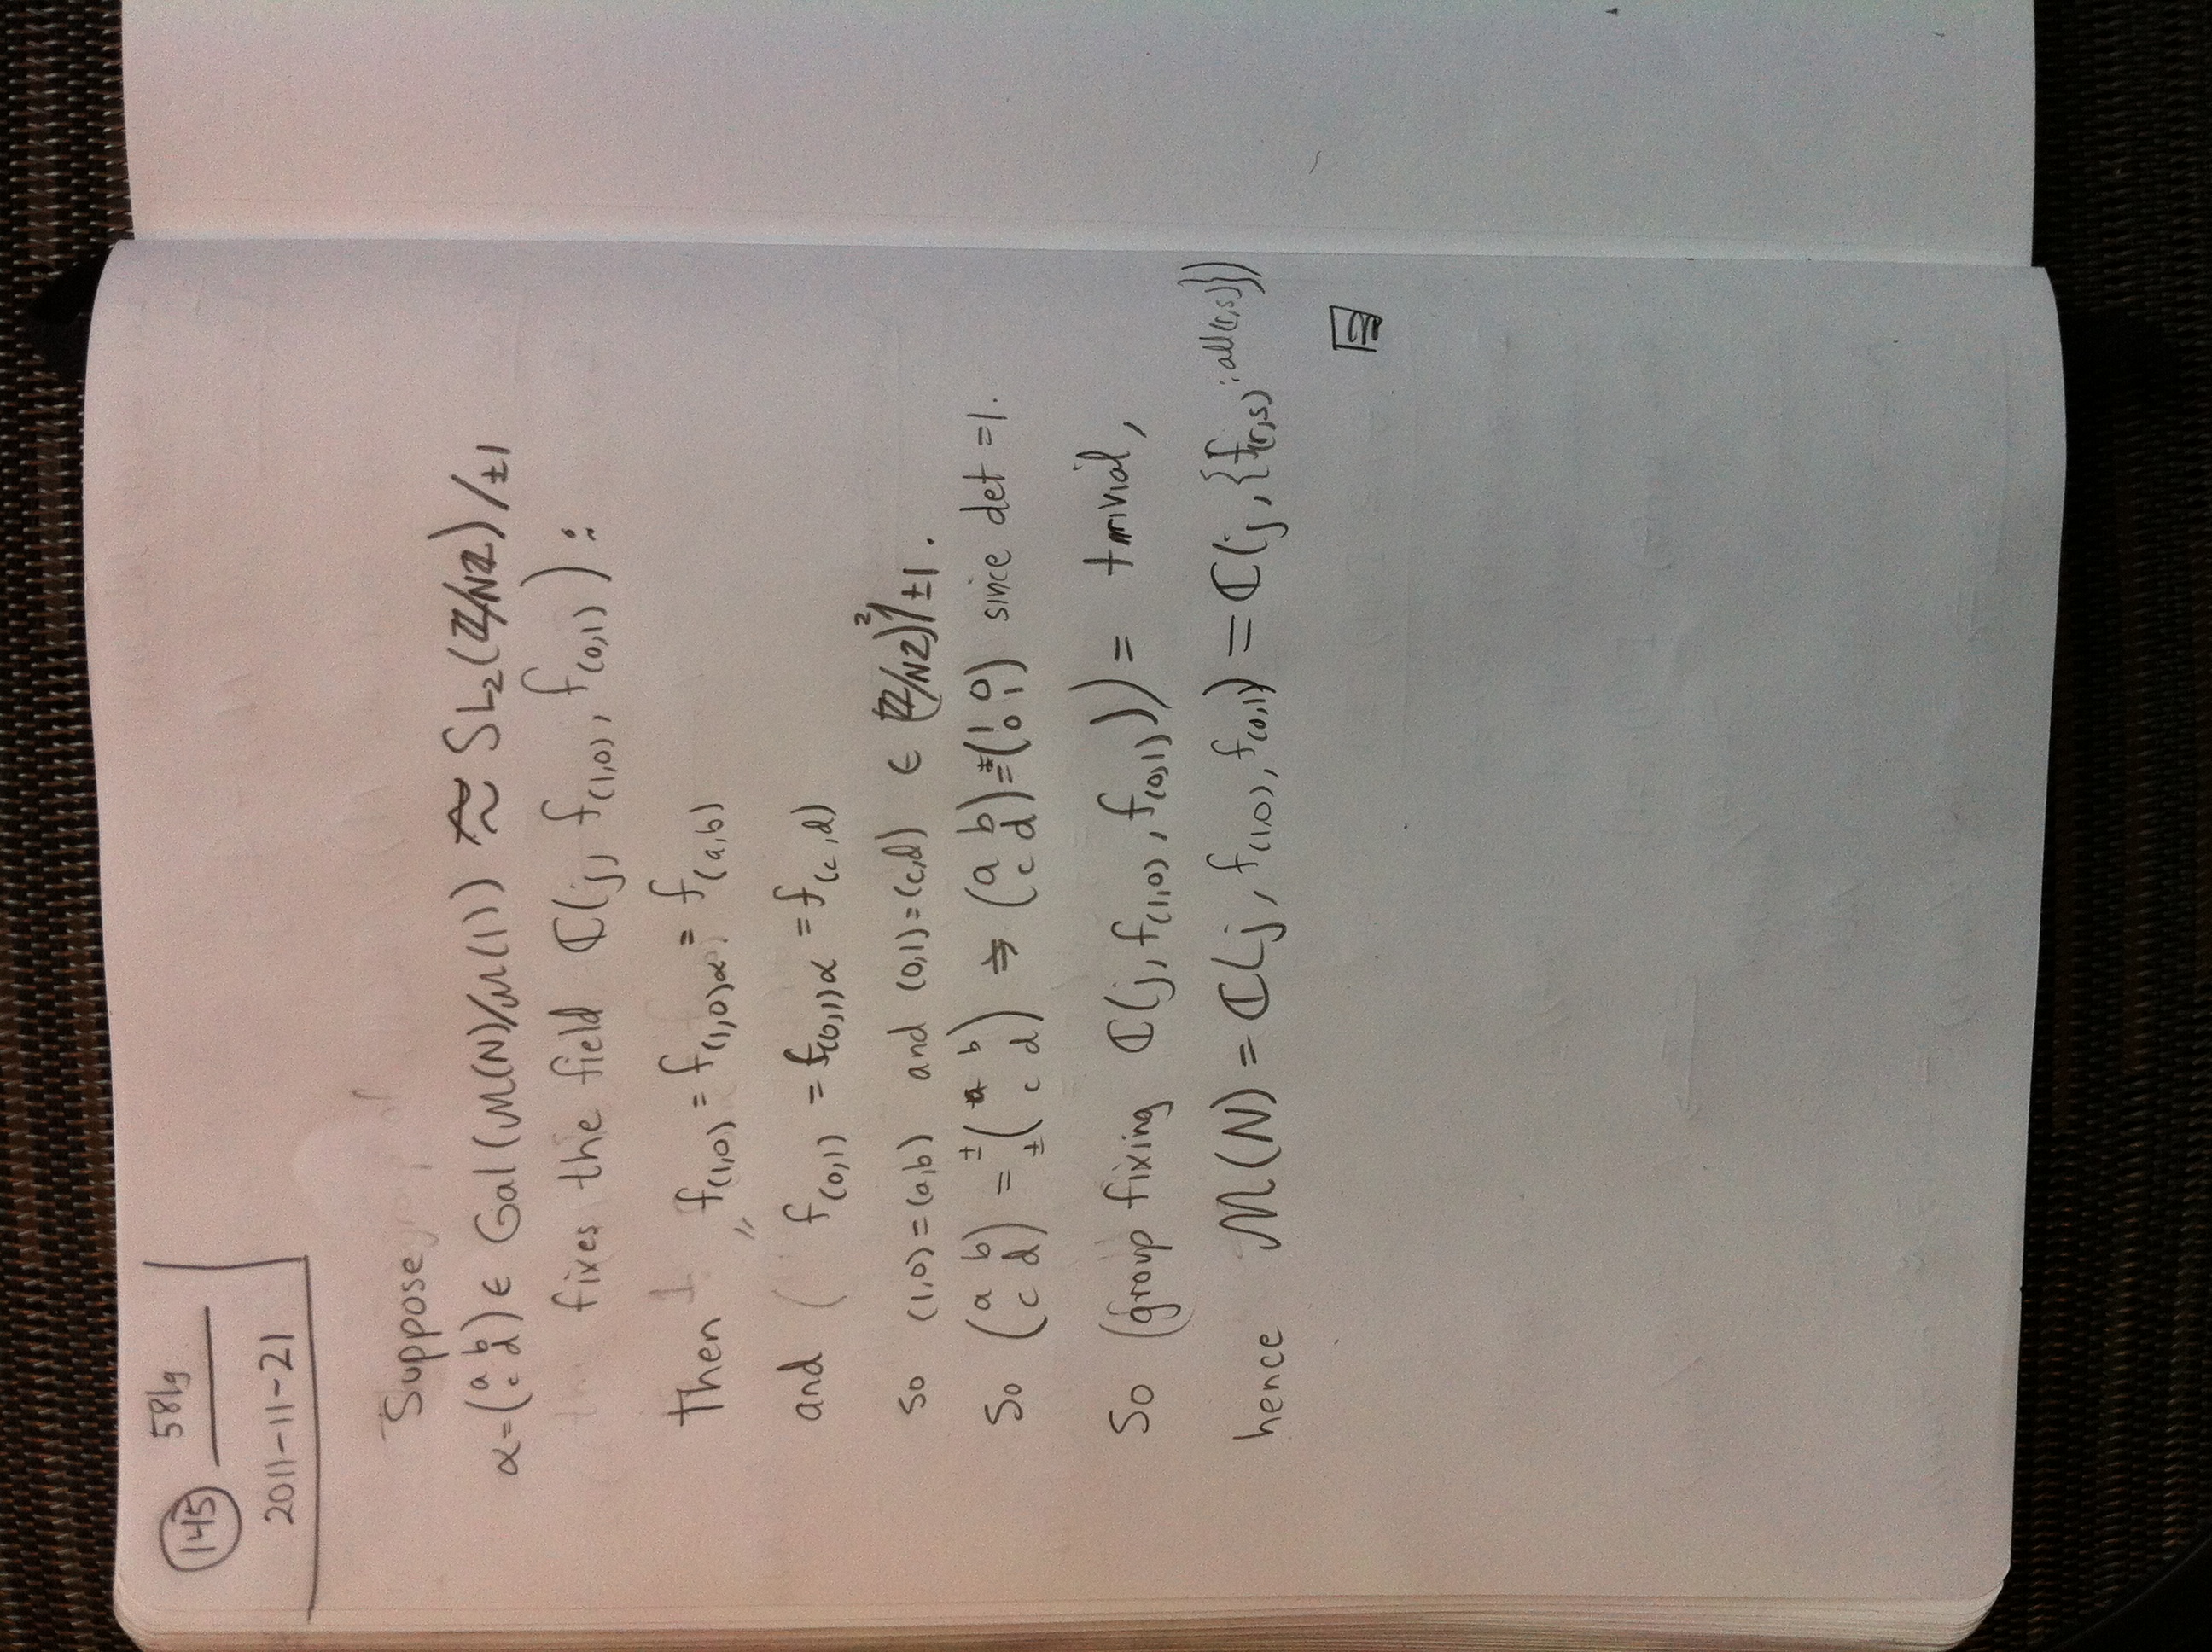 145 581g
2011-11-21
Suppose
α=(a b; c d) ∈ Gal(M(N)/M(1)) ≈ SL₂(ℤ/Nℤ)/±1
fixes the field ℂ(j, f₍₁,₀₎, f₍₀,₁₎):
then f₍₁,₀₎ = f₍₁,₀₎α = f₍a,b₎
and f₍₀,₁₎ = f₍₀,₁₎α = f₍c,d₎
so (1,0)=(a,b) and (0,1)=(c,d) ∈ (ℤ/Nℤ)²/±1.
So (a b; c d) = (±a ±b; ±c ±d) ⇒ (a b; c d)=±(1 0; 0 1) since det =1.
So (group fixing ℂ(j, f₍₁,₀₎, f₍₀,₁₎)) = trivial,
hence M(N) = ℂ(j, f₍₁,₀₎, f₍₀,₁₎) = ℂ(j, {f₍r,s₎ : all(r,s)})